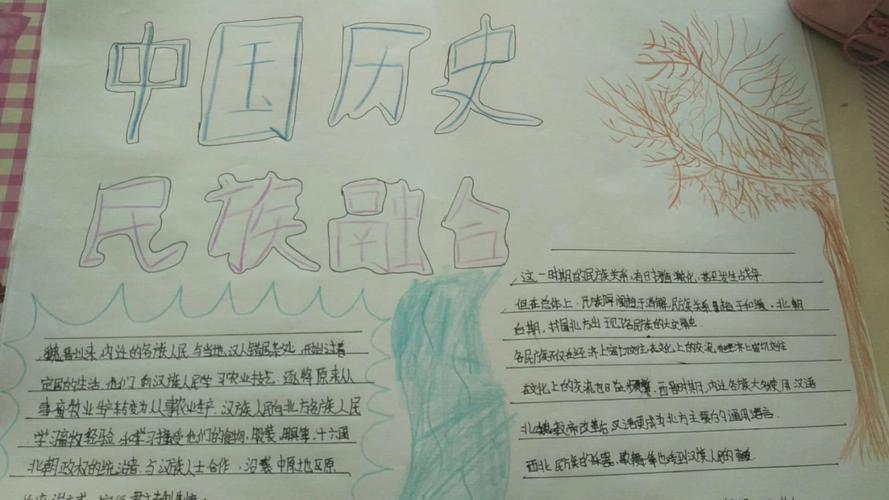 中国历史
民族融合
魏晋以来,内迁的各族人民与当地汉人错居杂处,开始过着
定居的生活,他们向汉族人民学习农业技艺,逐将原来从
事畜牧业生产转变为从事农业生产,汉族人民向北方各族人民
学习畜牧经验,并学习接受他们的食物,服装,用具等,十六国
北朝政权的统治者与汉族人士合作,沿袭中原地区原
这一时期的民族关系,有时激化,甚至发生战争
但在总体上,民族隔阂趋于消解,民族关系趋于和缓,北朝
后期,我国北方出现了各民族的大交融
各民族不仅在经济上密切交往,在文化上的交流
在文化上的交流也日益频繁,西晋时期,内迁各族大多使用汉语
北魏孝文帝改革后,汉语更成为北方主要的通用语言
西北民族的,歌舞等也受到汉族人民的